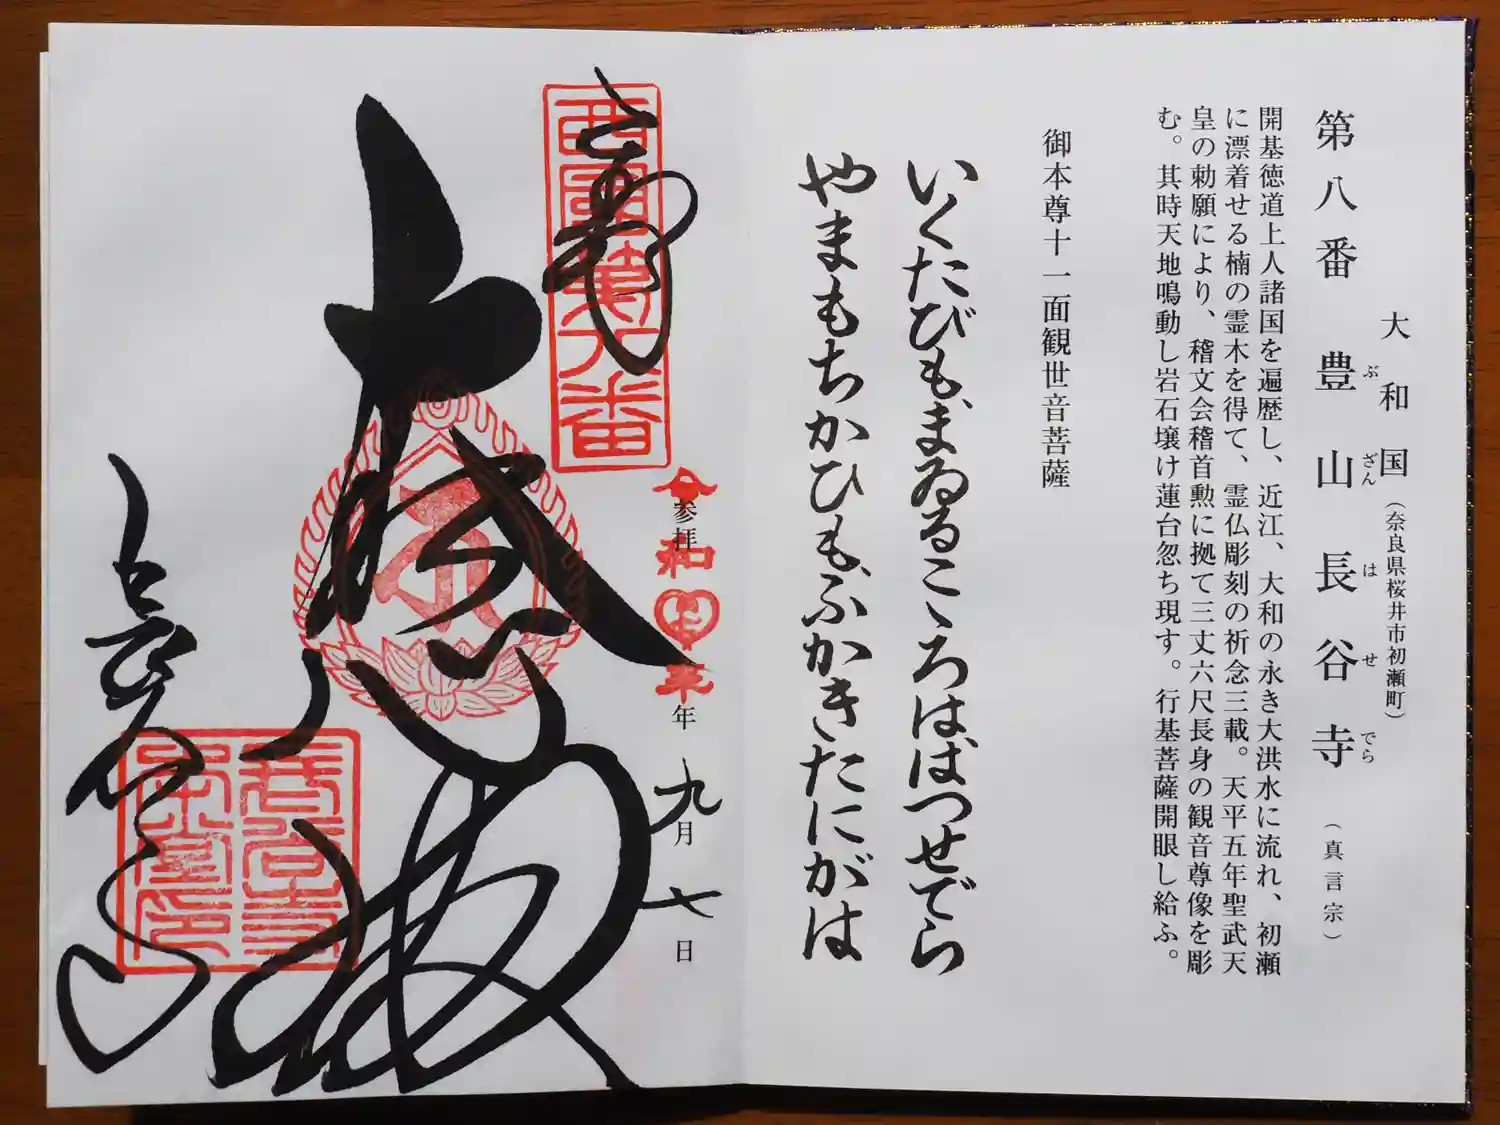 大和国(奈良県桜井市初瀬町)
第八番 豊山長谷寺 (真言宗)
ぶ ざん は せ でら
開基徳道上人諸国を遍歴し、近江、大和の永き大洪水に流れ、初瀬
に漂着せる楠の霊木を得て、霊仏彫刻の祈念三載。天平五年聖武天
皇の勅願により、稽文会稽首勲に拠て三丈六尺長身の観音尊像を彫
む。其時天地鳴動し岩石壌け蓮台忽ち現す。行基菩薩開眼し給ふ。
御本尊十一面観世音菩薩
いくたびもまゐるこゝろははつせでら
やまもちかひもふかきたにがは
西国第八番
参拝
令和四年年九月七日
大悲閣
長谷寺
本堂印